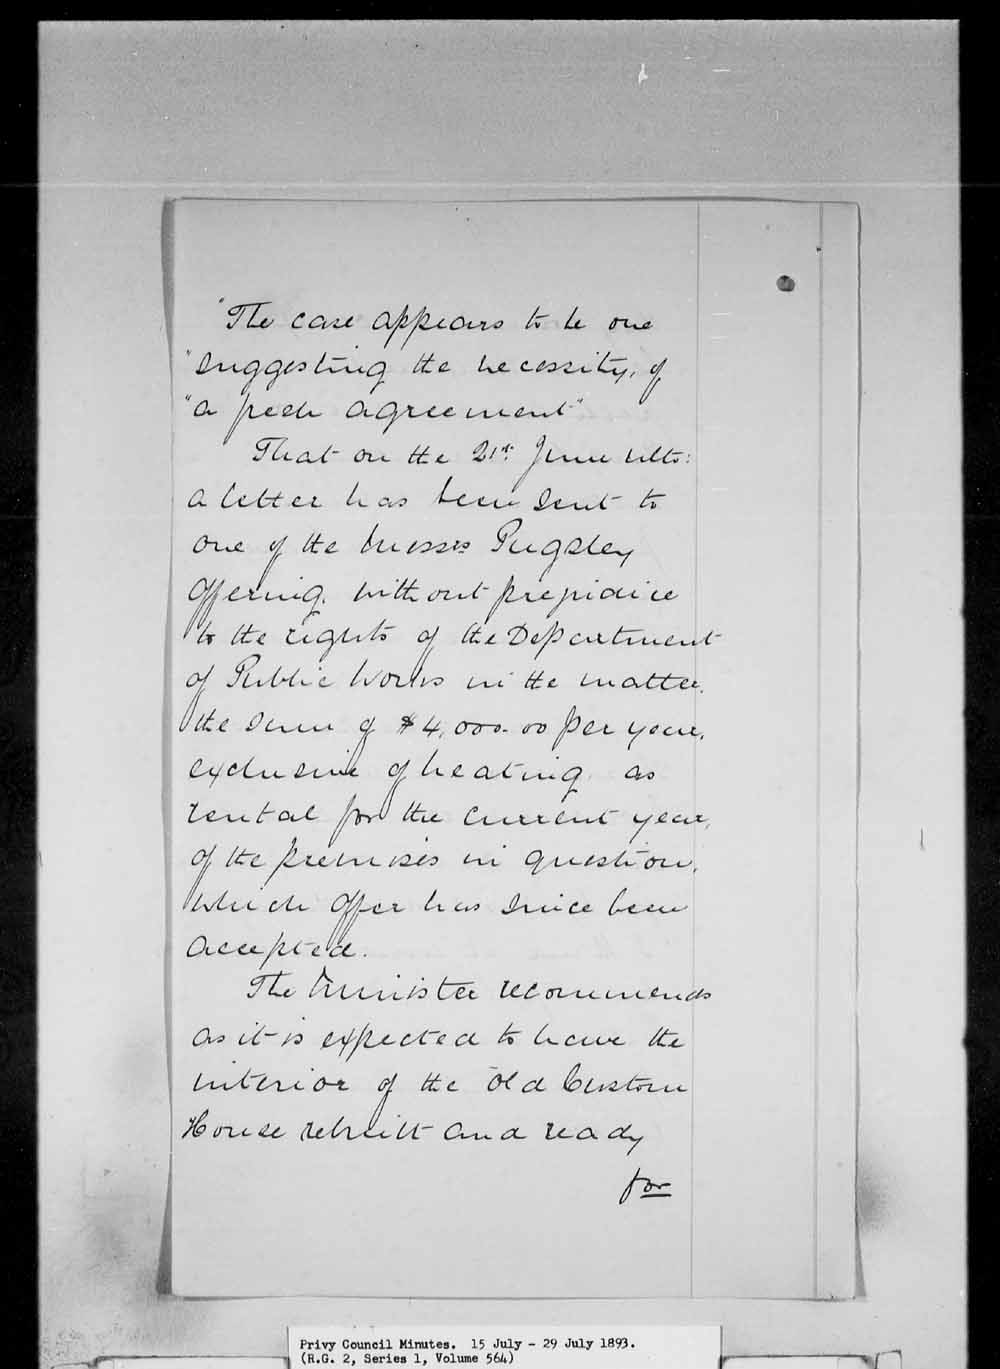 "The case appears to be one
"suggesting the necessity, of
"a fresh agreement"
That on the 21st June ulto:
a letter has been sent to
one of the Messrs Pugsley
offering, without prejudice
to the rights of the Department
of Public Works in the matter,
the sum of $4,000.00 per year,
exclusive of heating, as
rental for the current year,
of the premises in question,
which offer has since been
accepted.
The Minister recommends
as it is expected to have the
interior of the old Custom
House rebuilt and ready
for
Privy Council Minutes. 15 July - 29 July 1893.
(R.G. 2, Series 1, Volume 564)